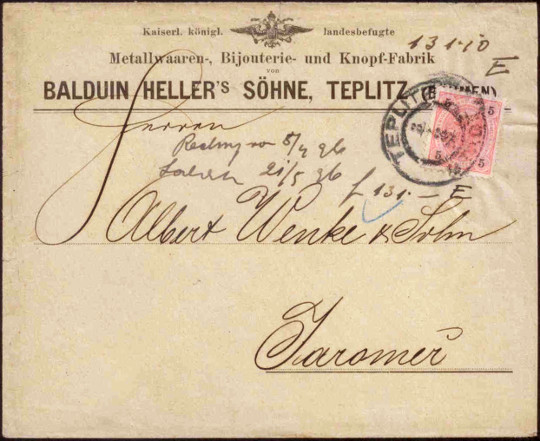 Kaiserl. königl. landesbefugte
Metallwaaren-, Bijouterie- und Knopf-Fabrik
von
BALDUIN HELLER'S SÖHNE, TEPLITZ (BÖHMEN)
131.10
E
5
5
5
TEPLITZ
Herren
8/4 96
21/5 96
f 131.- E
Albert Wenke & Sohn
Jaroměř